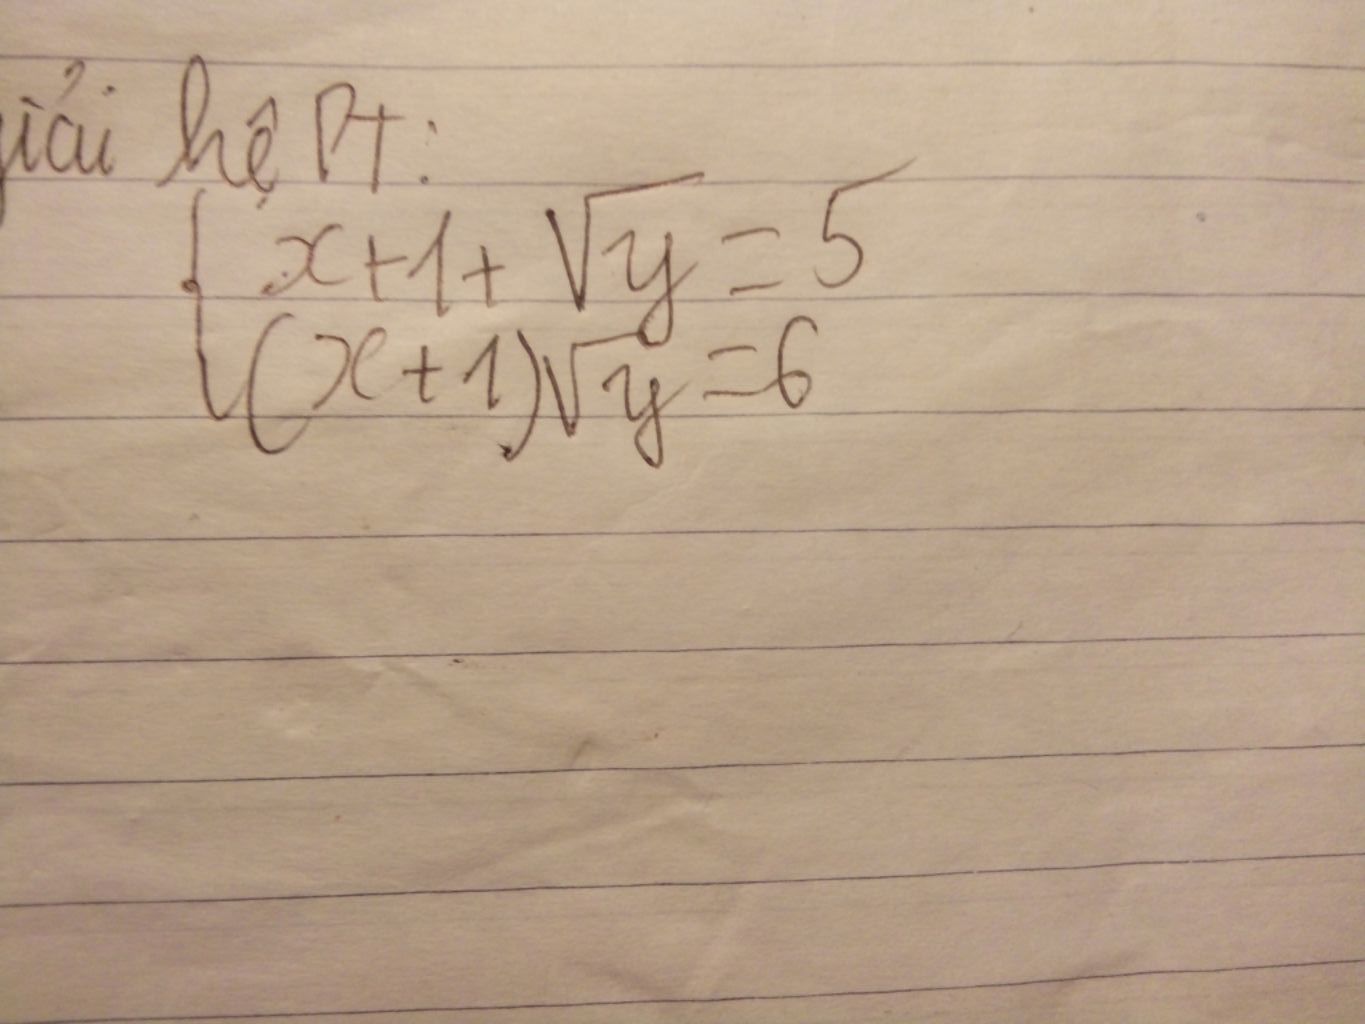 giải hệ PT:
x+1+√y=5
(x+1)√y=6